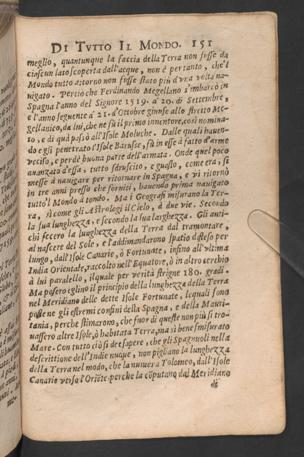 DI TVTTO IL MONDO. 151
meglio, quantunque la faccia della Terra non fusse da
ciascun lato scoperta dall'acque, non è pertanto, che'l
Mondo tutto attorno non fusse stato più d'vna volta na-
uigato. Percioche Ferdinando Megellano s'imbarcò in
Spagna l'anno del Signore 1519. a' 20. di Settembre,
e l'anno segnente a' 21. d'Ottobre giunse allo stretto Me-
gellanico, da lui, che ne fù il primo inuentore, così nomina-
to, e di quà passò all'Isole Moluche. Dalle quali hauen-
do egli penetrato l'Isole Barusse, fù in esse à fatto d'arme
vcciso, e perdè buona parte dell'armata. Onde quel poco
auanzato d'essa, tutto sdruscito, e guasto, come era, si
messe à nauigare per ritornare in Spagna, e vi ritornò
in tre anni presso che forniti, hauendo prima nauigato
tutto'l Mondo à tondo. Ma i Geografi misurano la Ter-
ra, sì come gli Astrologi il Cielo, à due vie. Secondo
la sua lunghezza, e secondo la sua larghezza. Gli anti-
chi fecero la lunghezza della Terra dal tramontare,
al nascere del Sole, e l'addimandarono spatio disteso per
lungo, dall'Isole Canarie, ò Fortunate, infino all'vltima
India Orientale, raccolto nell'Equatore, ò in altro cerchio
à lui parallelo, il quale per verità strigne 180. gradi.
Ma posero eglino il principio della lunghezza della Terra
nel Meridiano delle dette Isole Fortunate, lequali sono
poste ne gli estremi confini della Spagna, e della Mauri-
tania, perche stimarono, che fuor di queste non più si tro-
uassero altre Isole, ò habitata Terra, ma sì bene smisurato
Mare. Con tutto ciò si dè sapere, che gli Spagnuoli nella
descrittione dell'Indie nuoue, non pigliano la lunghezza
della Terra nel modo, che la numera Tolomeo, dall'Isole
Canarie verso l'Oriëte perche la cõputano dal Meridiano